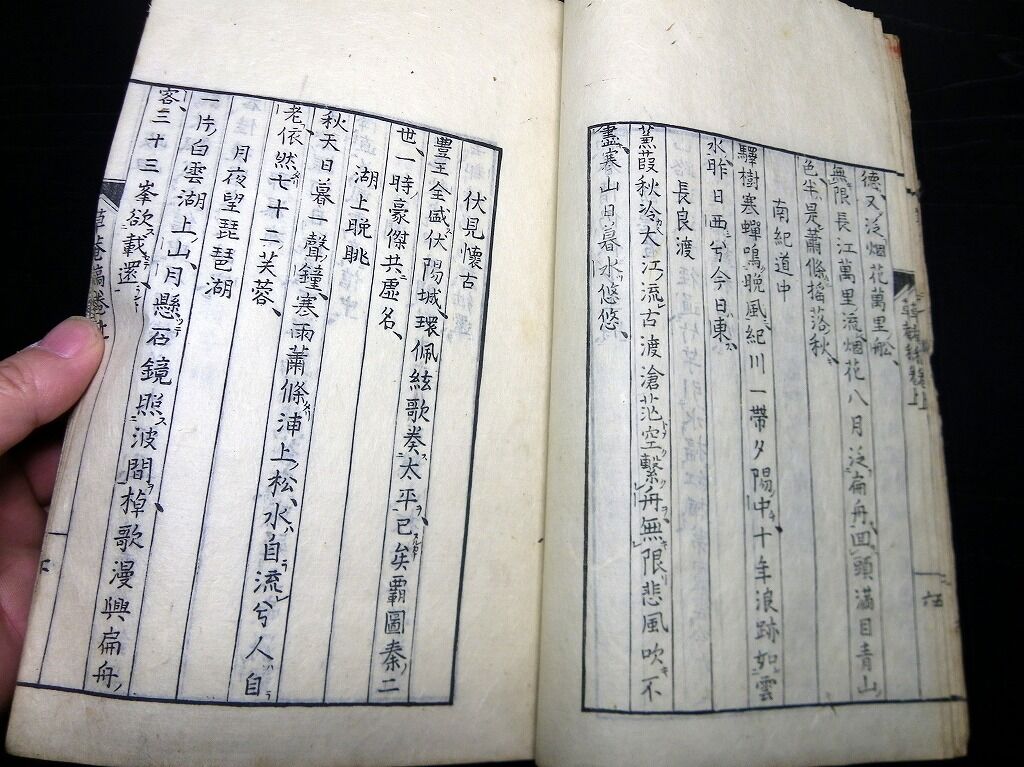 德又泛烟花萬里舩
無限長江萬里流烟花八月泛扁舟回頭滿目青山
色半是蕭條揺落秋
南紀道中
驛樹寒蟬鳴晩風紀川一帶夕陽中十年浪跡如雲
水昨日西兮今日東
長良渡
蒹葭秋冷大江流古渡滄茫空繫舟無限悲風吹不
盡寒山日暮水悠悠
伏見懐古
豊王全盛伏陽城環佩絃歌奏太平已矣覇圖秦二
世一時豪傑共虚名
湖上晩眺
秋天日暮一聲鐘寒雨蕭條浦上松水自流兮人自
老依然七十二芙蓉
月夜望琵琶湖
一片白雲湖上山月懸石鏡照波間棹歌漫興扁舟
客三十三峯欲載還